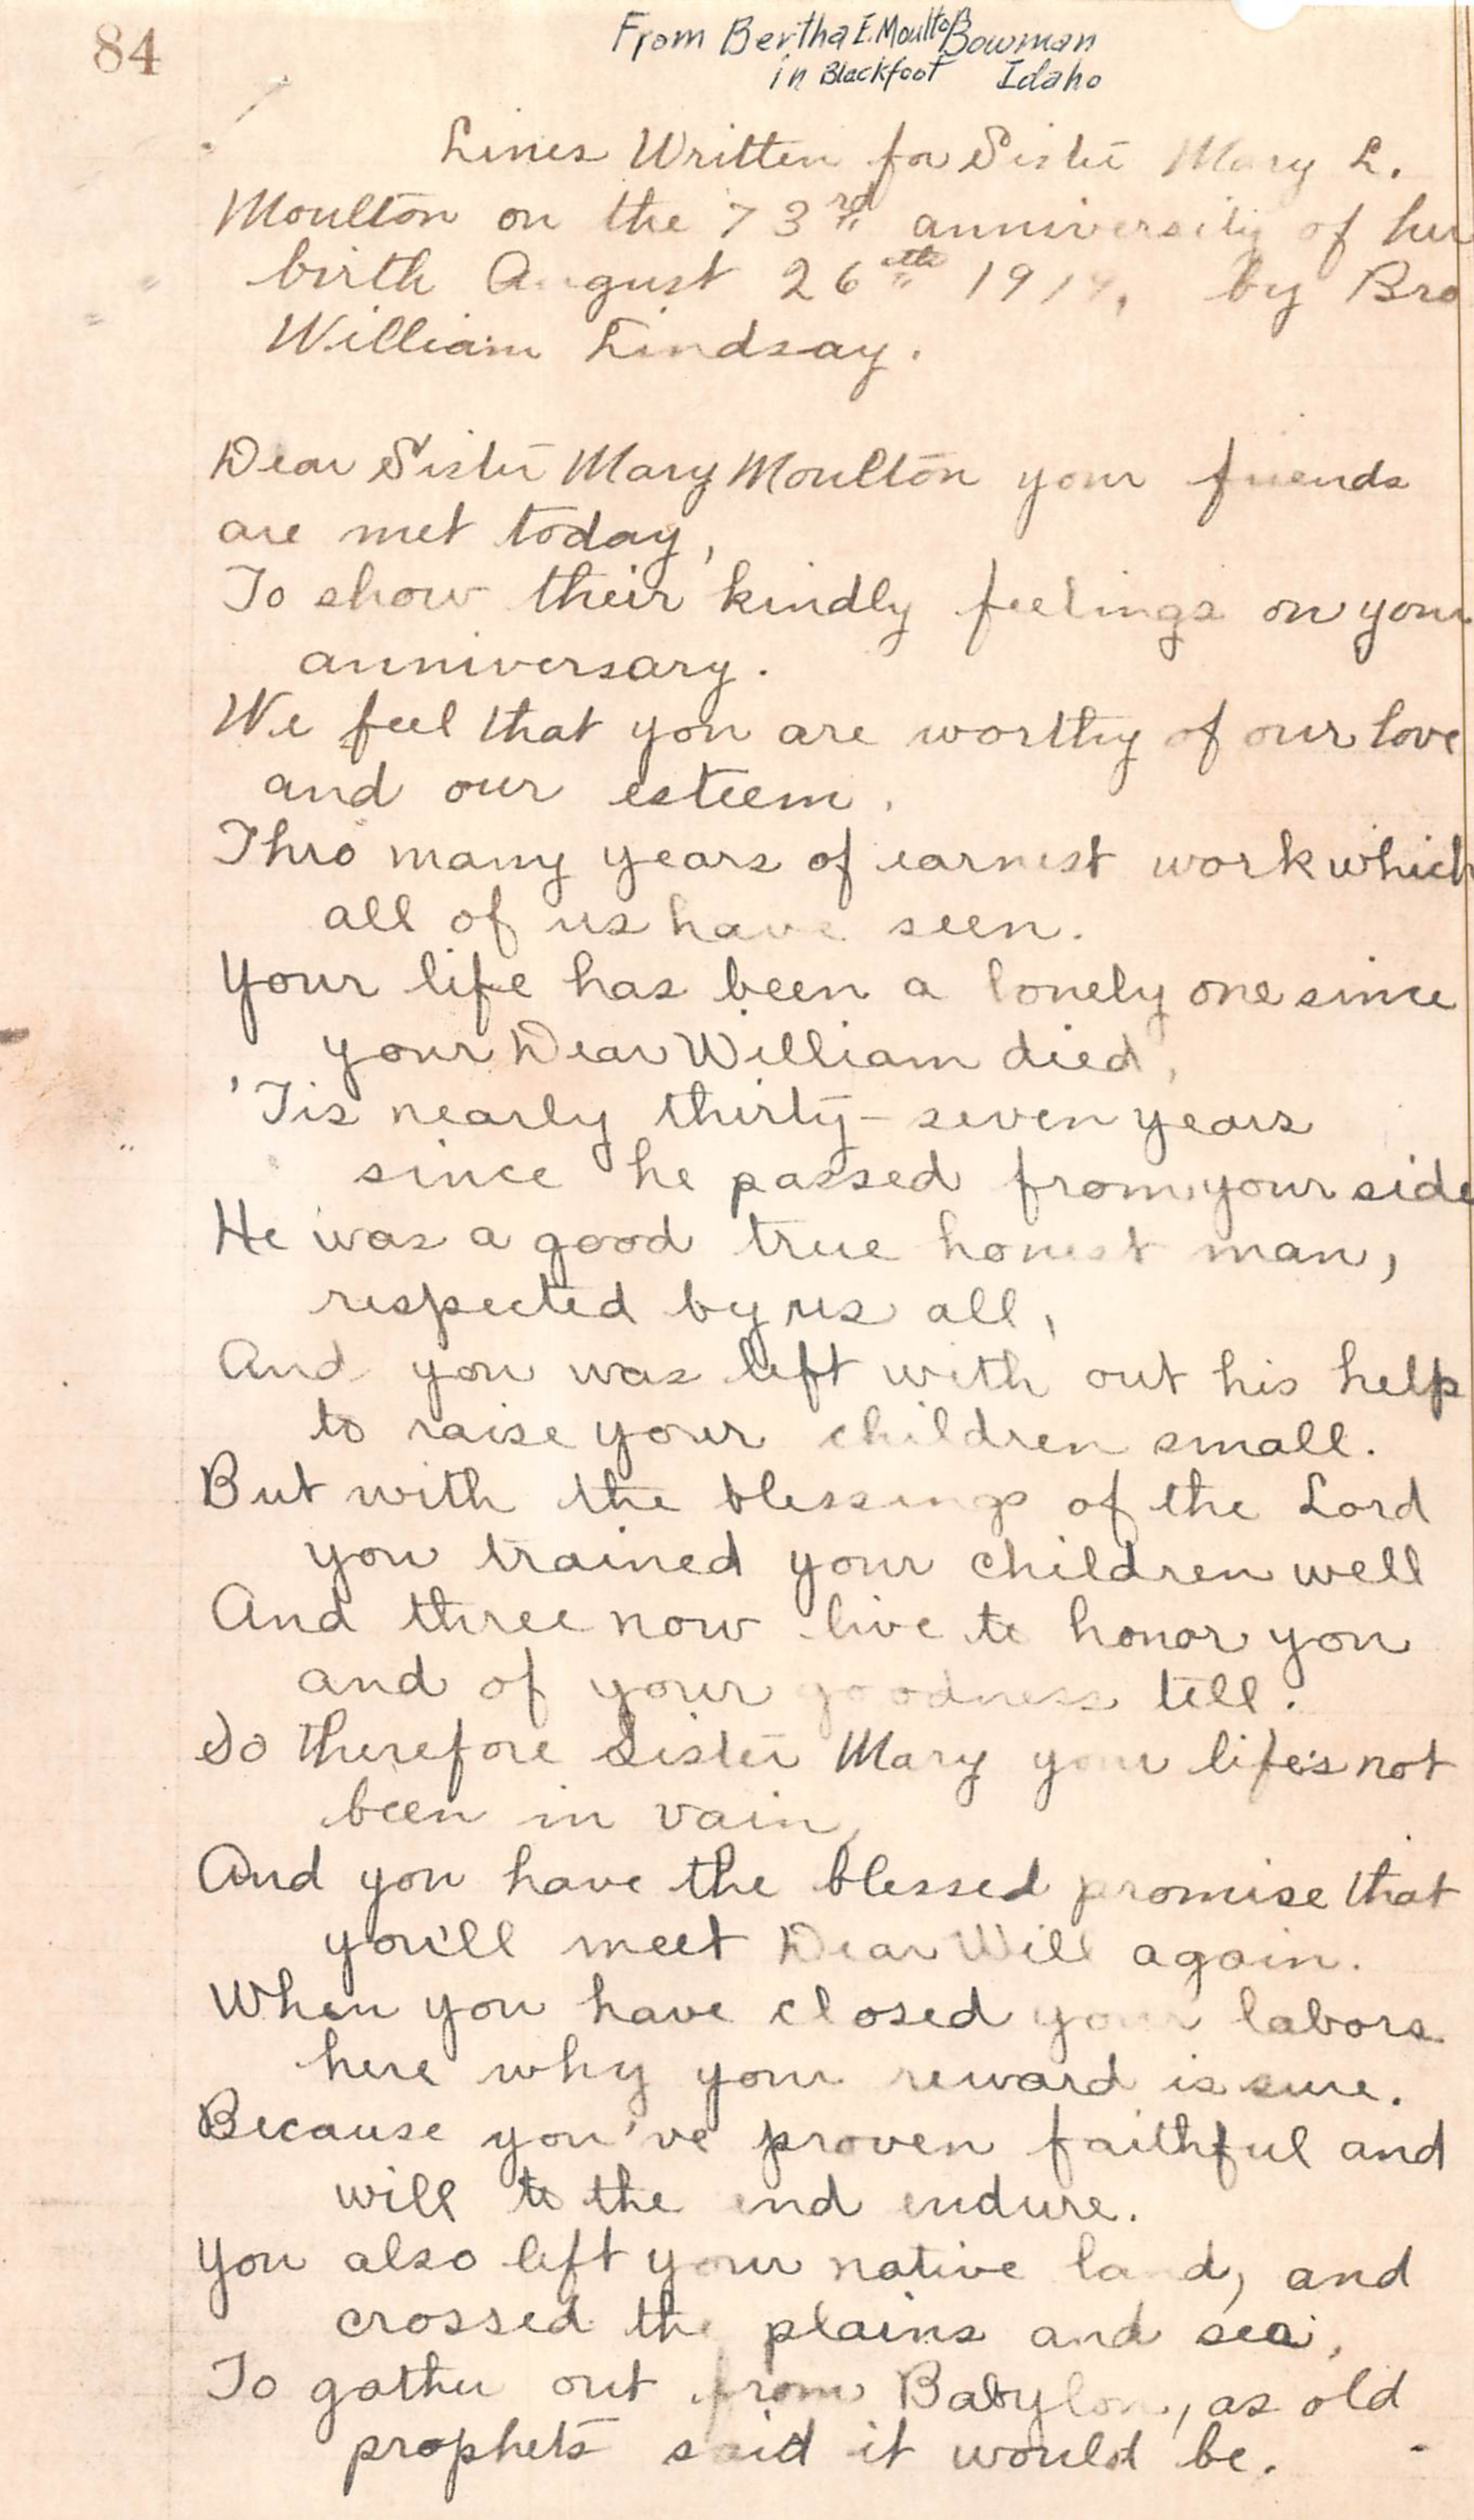 84
From Bertha E. Moulton Bowman
in Blackfoot Idaho
Lines Written for Sister Mary L.
Moulton on the 73rd anniversity of her
birth August 26th 1914, by Bro
William Lindsay.
Dear Sister Mary Moulton your friends
are met today,
To show their kindly feelings on your
anniversary.
We feel that you are worthy of our love
and our esteem.
Thro many years of earnest work which
all of us have seen.
Your life has been a lonely one since
your Dear William died,
'Tis nearly thirty-seven years
since he passed from your side
He was a good true honest man,
respected by us all,
And you was left with out his help
to raise your children small.
But with the blessings of the Lord
you trained your children well
And three now live to honor you
and of your goodness tell.
So therefore Sister Mary your life's not
been in vain,
And you have the blessed promise that
you'll meet Dear Will again.
When you have closed your labors
here why your reward is sure.
Because you've proven faithful and
will to the end endure.
You also left your native land, and
crossed the plains and sea,
To gather out from Babylon, as old
prophets said it would be.